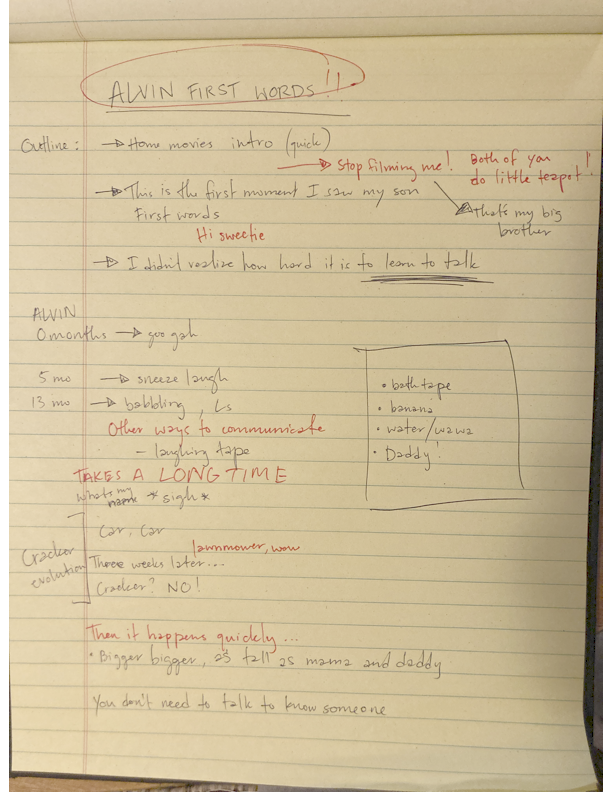 ALVIN FIRST WORDS!!
Outline: → Home movies intro (quick)
→ Stop filming me! Both of you
do little teapot!
→ This is the first moment I saw my son
First words
→ That's my big
brother
Hi sweetie
→ I didn't realize how hard it is to learn to talk
ALVIN
0 months → goo gah
5 mo → sneeze laugh
13 mo → babbling, Ls
Other ways to communicate
- laughing tape
TAKES A LONG TIME
What's my name *sigh*
• bath tape
• banana
• water/wawa
• Daddy!
Cracker
evolution
Car, Car
lawnmower, wow
Three weeks later...
Cracker? NO!
Then it happens quickly...
• Bigger bigger, as tall as mama and daddy
You don't need to talk to know someone